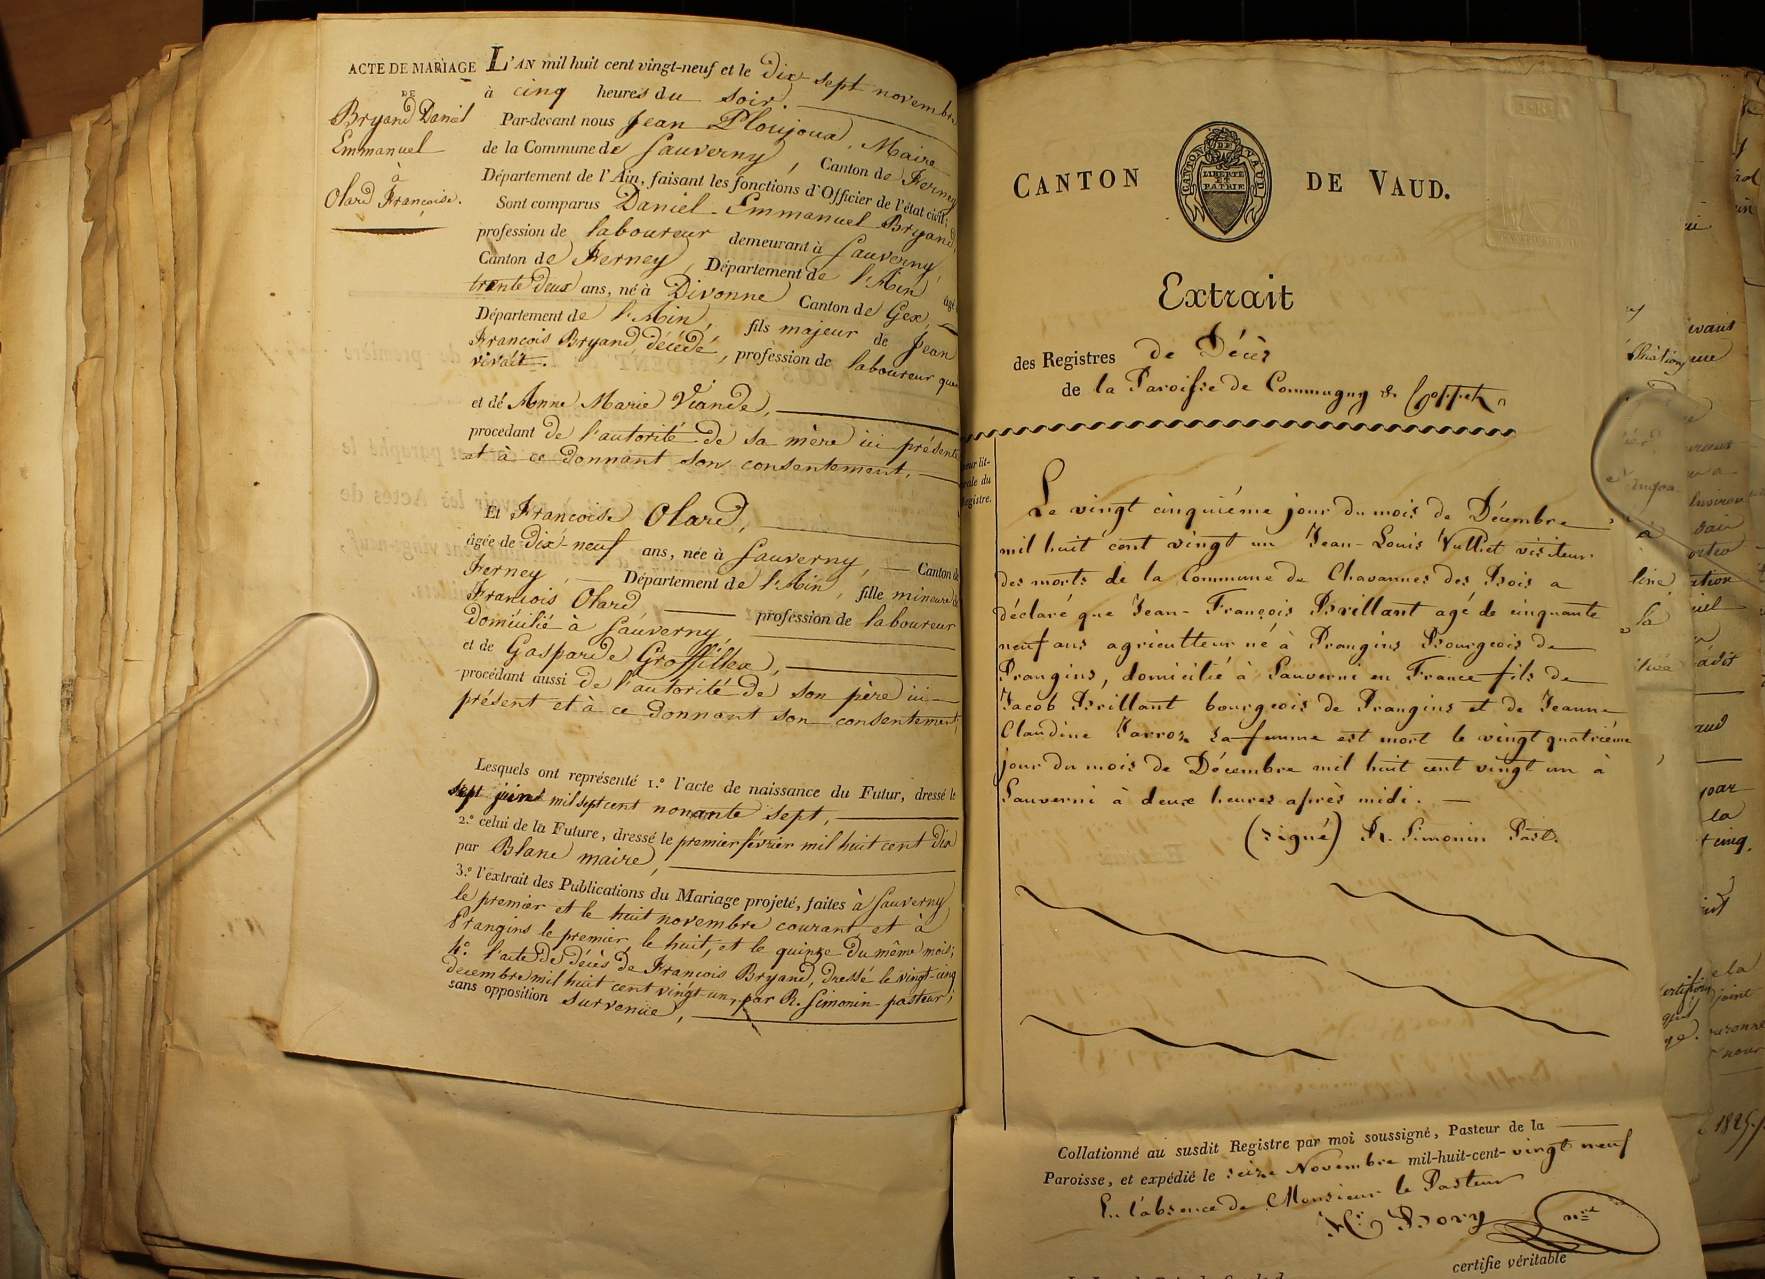 ACTE DE MARIAGE
DE
Bryand Daniel
Emmanuel
à
Olard Françoise.
L'AN mil huit cent vingt-neuf et le dix sept novembre
à cinq heures du soir.
Par-devant nous Jean Ploujoux, Maire
de la Commune de Sauverny, Canton de Ferney
Département de l'Ain, faisant les fonctions d'Officier de l'état civil;
Sont comparus Daniel-Emmanuel Bryand,
profession de laboureur demeurant à Sauverny,
Canton de Ferney, Département de l'Ain, âgé
trente deux ans, né à Divonne Canton de Gex,
Département de l'Ain, fils majeur de Jean
François Bryand, décédé, profession de laboureur quand
vivait.
et de Anne Marie Viande,
procédant de l'autorité de sa mère ici présente
et à ce donnant son consentement.
Et Françoise Olard,
âgée de dix-neuf ans, née à Sauverny, Canton de
Ferney, Département de l'Ain, fille mineure de
François Olard profession de laboureur
domicilié à Sauverny
et de Gasparde Grossillex,
procédant aussi de l'autorité de son père ici
présent et à ce donnant son consentement,
Lesquels ont représenté 1.º l'acte de naissance du Futur, dressé le
sept juin mil sept cent nonante sept,
2.º celui de la Future, dressé le premier février mil huit cent dix
par Blanc maire,
3.º l'extrait des Publications du Mariage projeté, faites à Sauverny
le premier et le huit novembre courant, et à
Prangins le premier, le huit, et le quinze du même mois;
4.º l'acte de décès de François Bryand, dressé le vingt-cinq
décembre mil huit cent vingt-un, par R. Simonin pasteur;
sans opposition survenue,
CANTON DE VAUD.
CANTON DE VAUD
LIBERTÉ
ET
PATRIE
Extrait
des Registres de Décès
de la Paroisse de Commugny & Coppet
Le vingt cinquième jour du mois de Décembre
mil huit cent vingt un Jean-Louis Vulliet visiteur
des morts de la Commune de Chavannes des Bois a
déclaré que Jean-François Brillant agé de cinquante
neuf ans agriculteur né à Prangins Bourgeois de
Prangins, domicilié à Sauverni en France fils de
Jacob Brillant bourgeois de Prangins et de Jeanne
Claudine Jarroz sa femme est mort le vingt quatrième
jour du mois de Décembre mil huit cent vingt un à
Sauverni à deux heures après midi.
(signé) R. Simonin Past.
Collationné au susdit Registre par moi soussigné, Pasteur de la
Paroisse, et expédié le seize Novembre mil-huit-cent-vingt neuf
En l'absence de Monsieur le Pasteur
Bory
certifie véritable